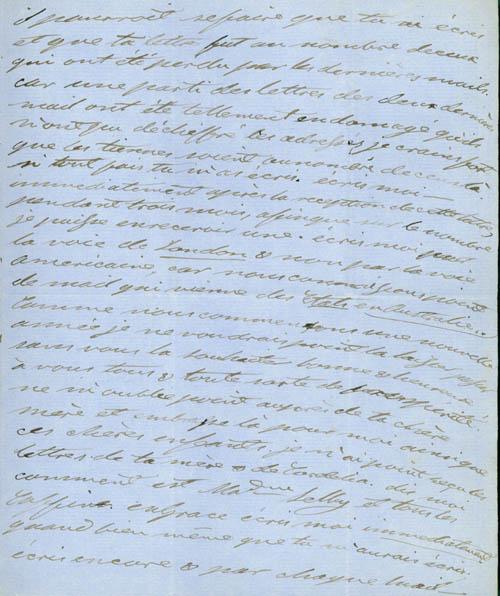 il pourroit se faire que tu ai écris
et que ta lettre fut au nombre de ceux
qui ont été perdu par les dernières mails.
car une parti des lettres des deux dernière
mail ont été tellement endomagé qu'ils
n'ont pu déchiffré les adresses, je crains fort
que les tiennes soient au nombre de ceux là
si tout fois tu m'as écris. écris moi
immédiatement après la reception de cette lettre
pendant trois mois, afin que sur le nombre
je puisse en recevoir une. écris moi par
la voie de London & non par la voie
americaine, car nous n'avons point
de mail qui vienne des Etats en Australie.
Comme nous commençons une nouvelle
année je ne voudrais point la laisser passer
sans vous la souhaiter bonne & heureuse
à vous tous & toute sorte de prosperité
ne m'oublie point auprès de ta chère
mère et embrasse là pour moi ainsi que
ces chères enfants, je n'ai point reçu les
lettres de ta mère & de Cordelia. dis moi
comment est Mad^me Selby et tous les
de grace écris moi immédiatement
quand bien même que tu m'aurais écris
écris encore & par chaque mail